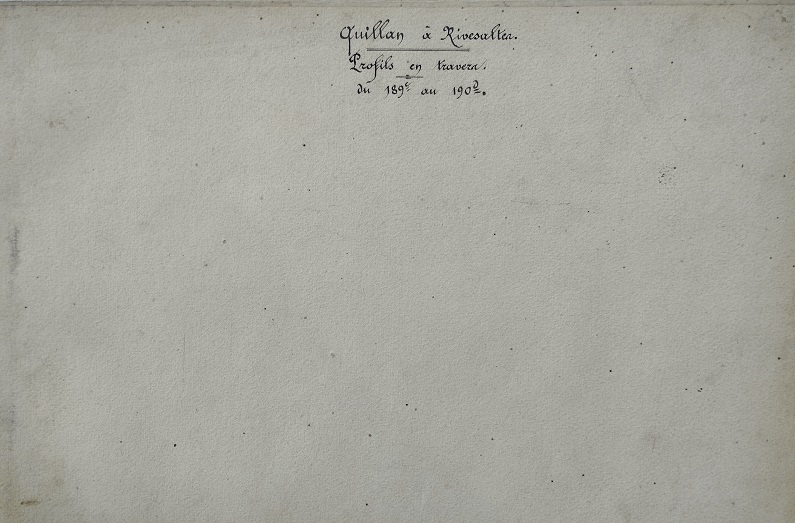 Quillan à Rivesaltes.
Profils en travers.
du 189ᵉ au 190ᵉ.